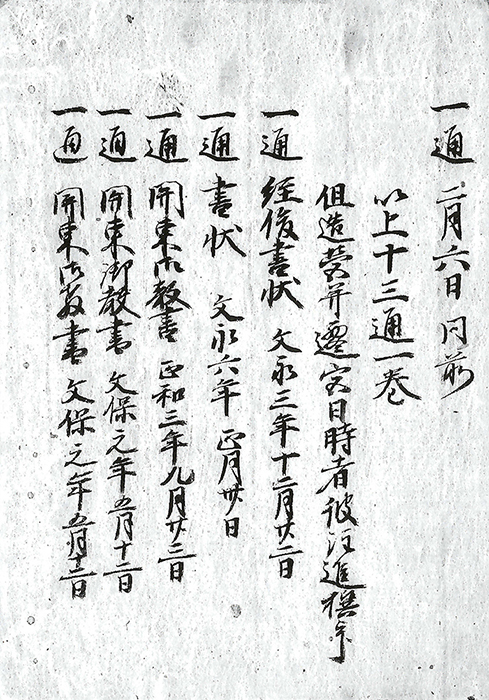 一通 二月六日 同前
以上十三通一巻
但造営并遷宮日時者被注進撰
一通 経俊書状 文永三年十二月廿二日
一通 書状 文永六年 正月廿日
一通 関東御教書 正和三年九月廿三日
一通 関東御教書 文保元年五月十二日
一通 関東御教書 文保元年五月十二日